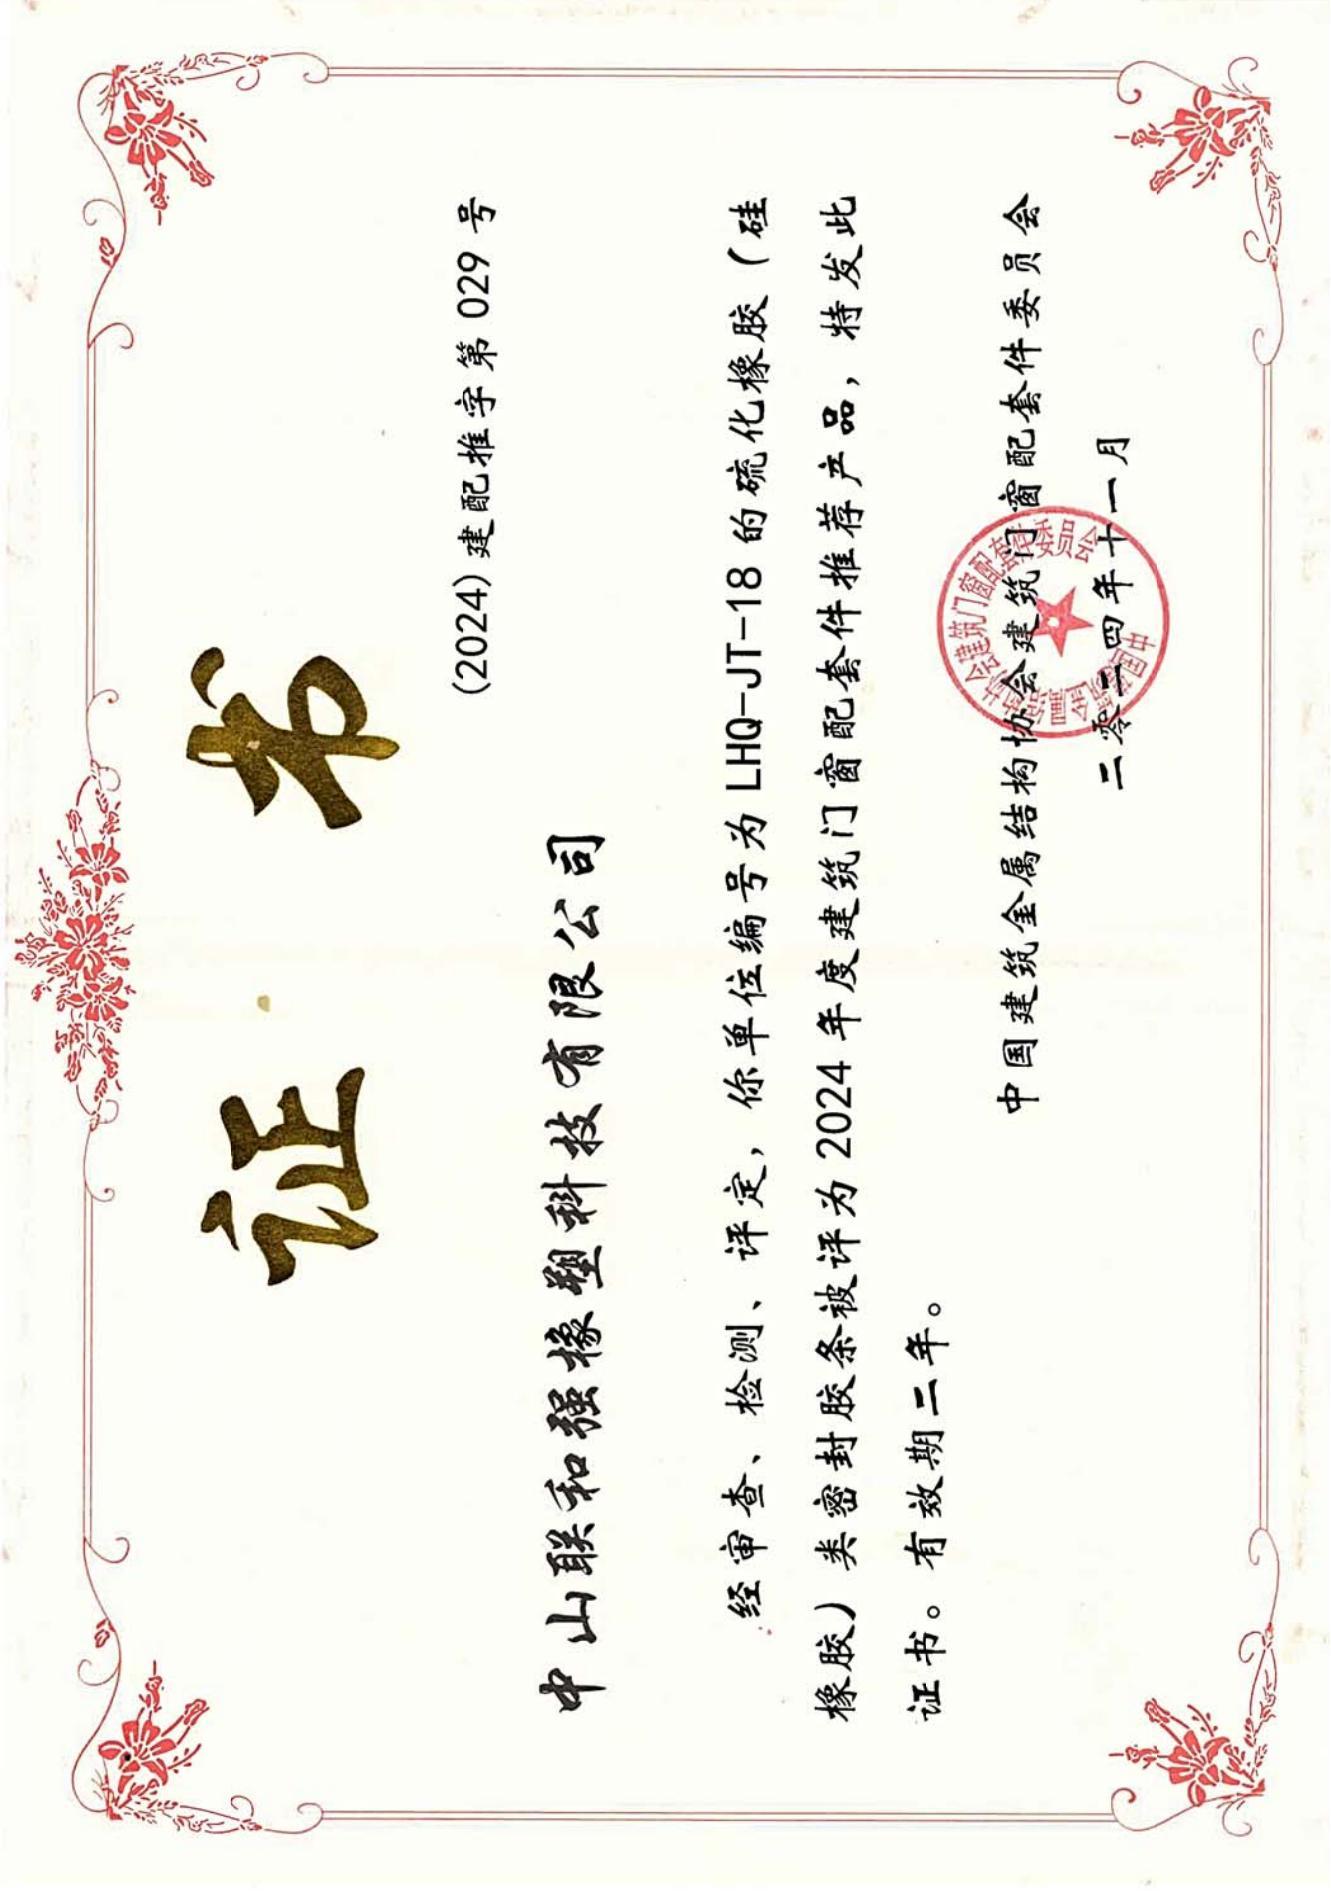 证书
(2024)建配推字第029号
中山联和强橡塑科技有限公司
经审查、检测、评定，你单位编号为LHQ-JT-18的硫化橡胶（硅
橡胶）类密封胶条被评为2024年度建筑门窗配套件推荐产品，特发此
证书。有效期二年。
中国建筑金属结构协会建筑门窗配套件委员会
二零二四年十一月
中国建筑金属结构协会建筑门窗配套件委员会